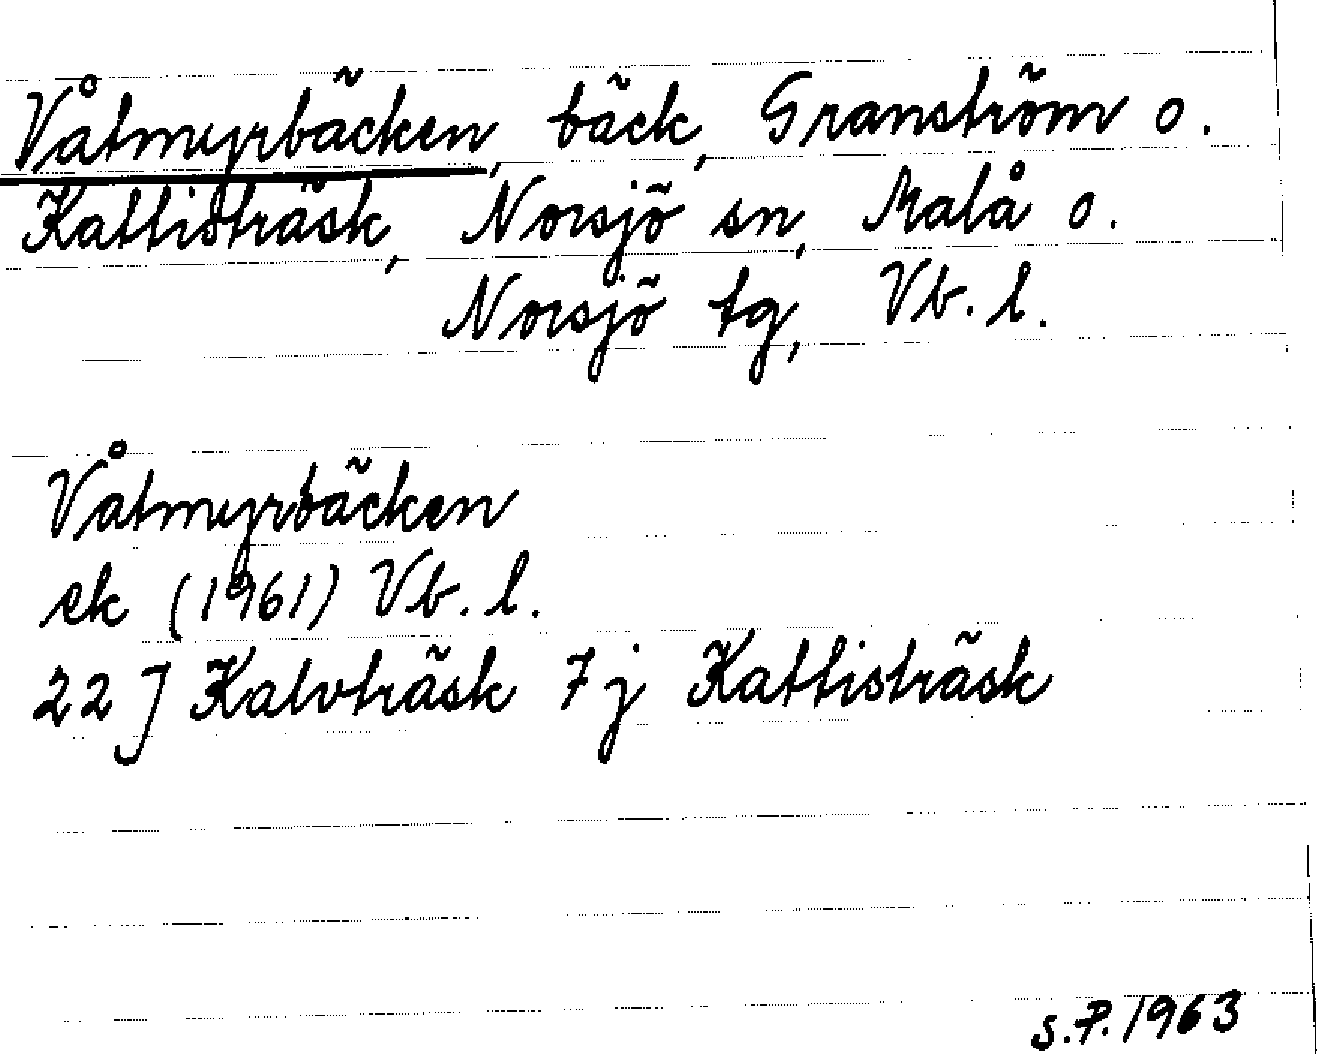 Våtmyrbäcken, bäck, Granström o.
Kattisträsk, Norsjö sn, Malå o.
Norsjö tg, Vb. l.
Våtmyrbäcken
ek (1961) Vb. l.
22 J Kalvträsk 7 j Kattisträsk
S.P. 1963